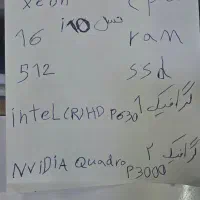 xeon cpu
i10 نسل
16 ram
512 ssd
intel(R)HD P630 گرافیک 1
NVIDIA Quadro P3000 گرافیک ۲